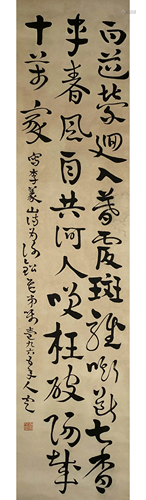 白道縈迴入暮霞斑騅嘶斷七香
車春風自共何人笑枉破陽城
十萬家
寫李義山詩為